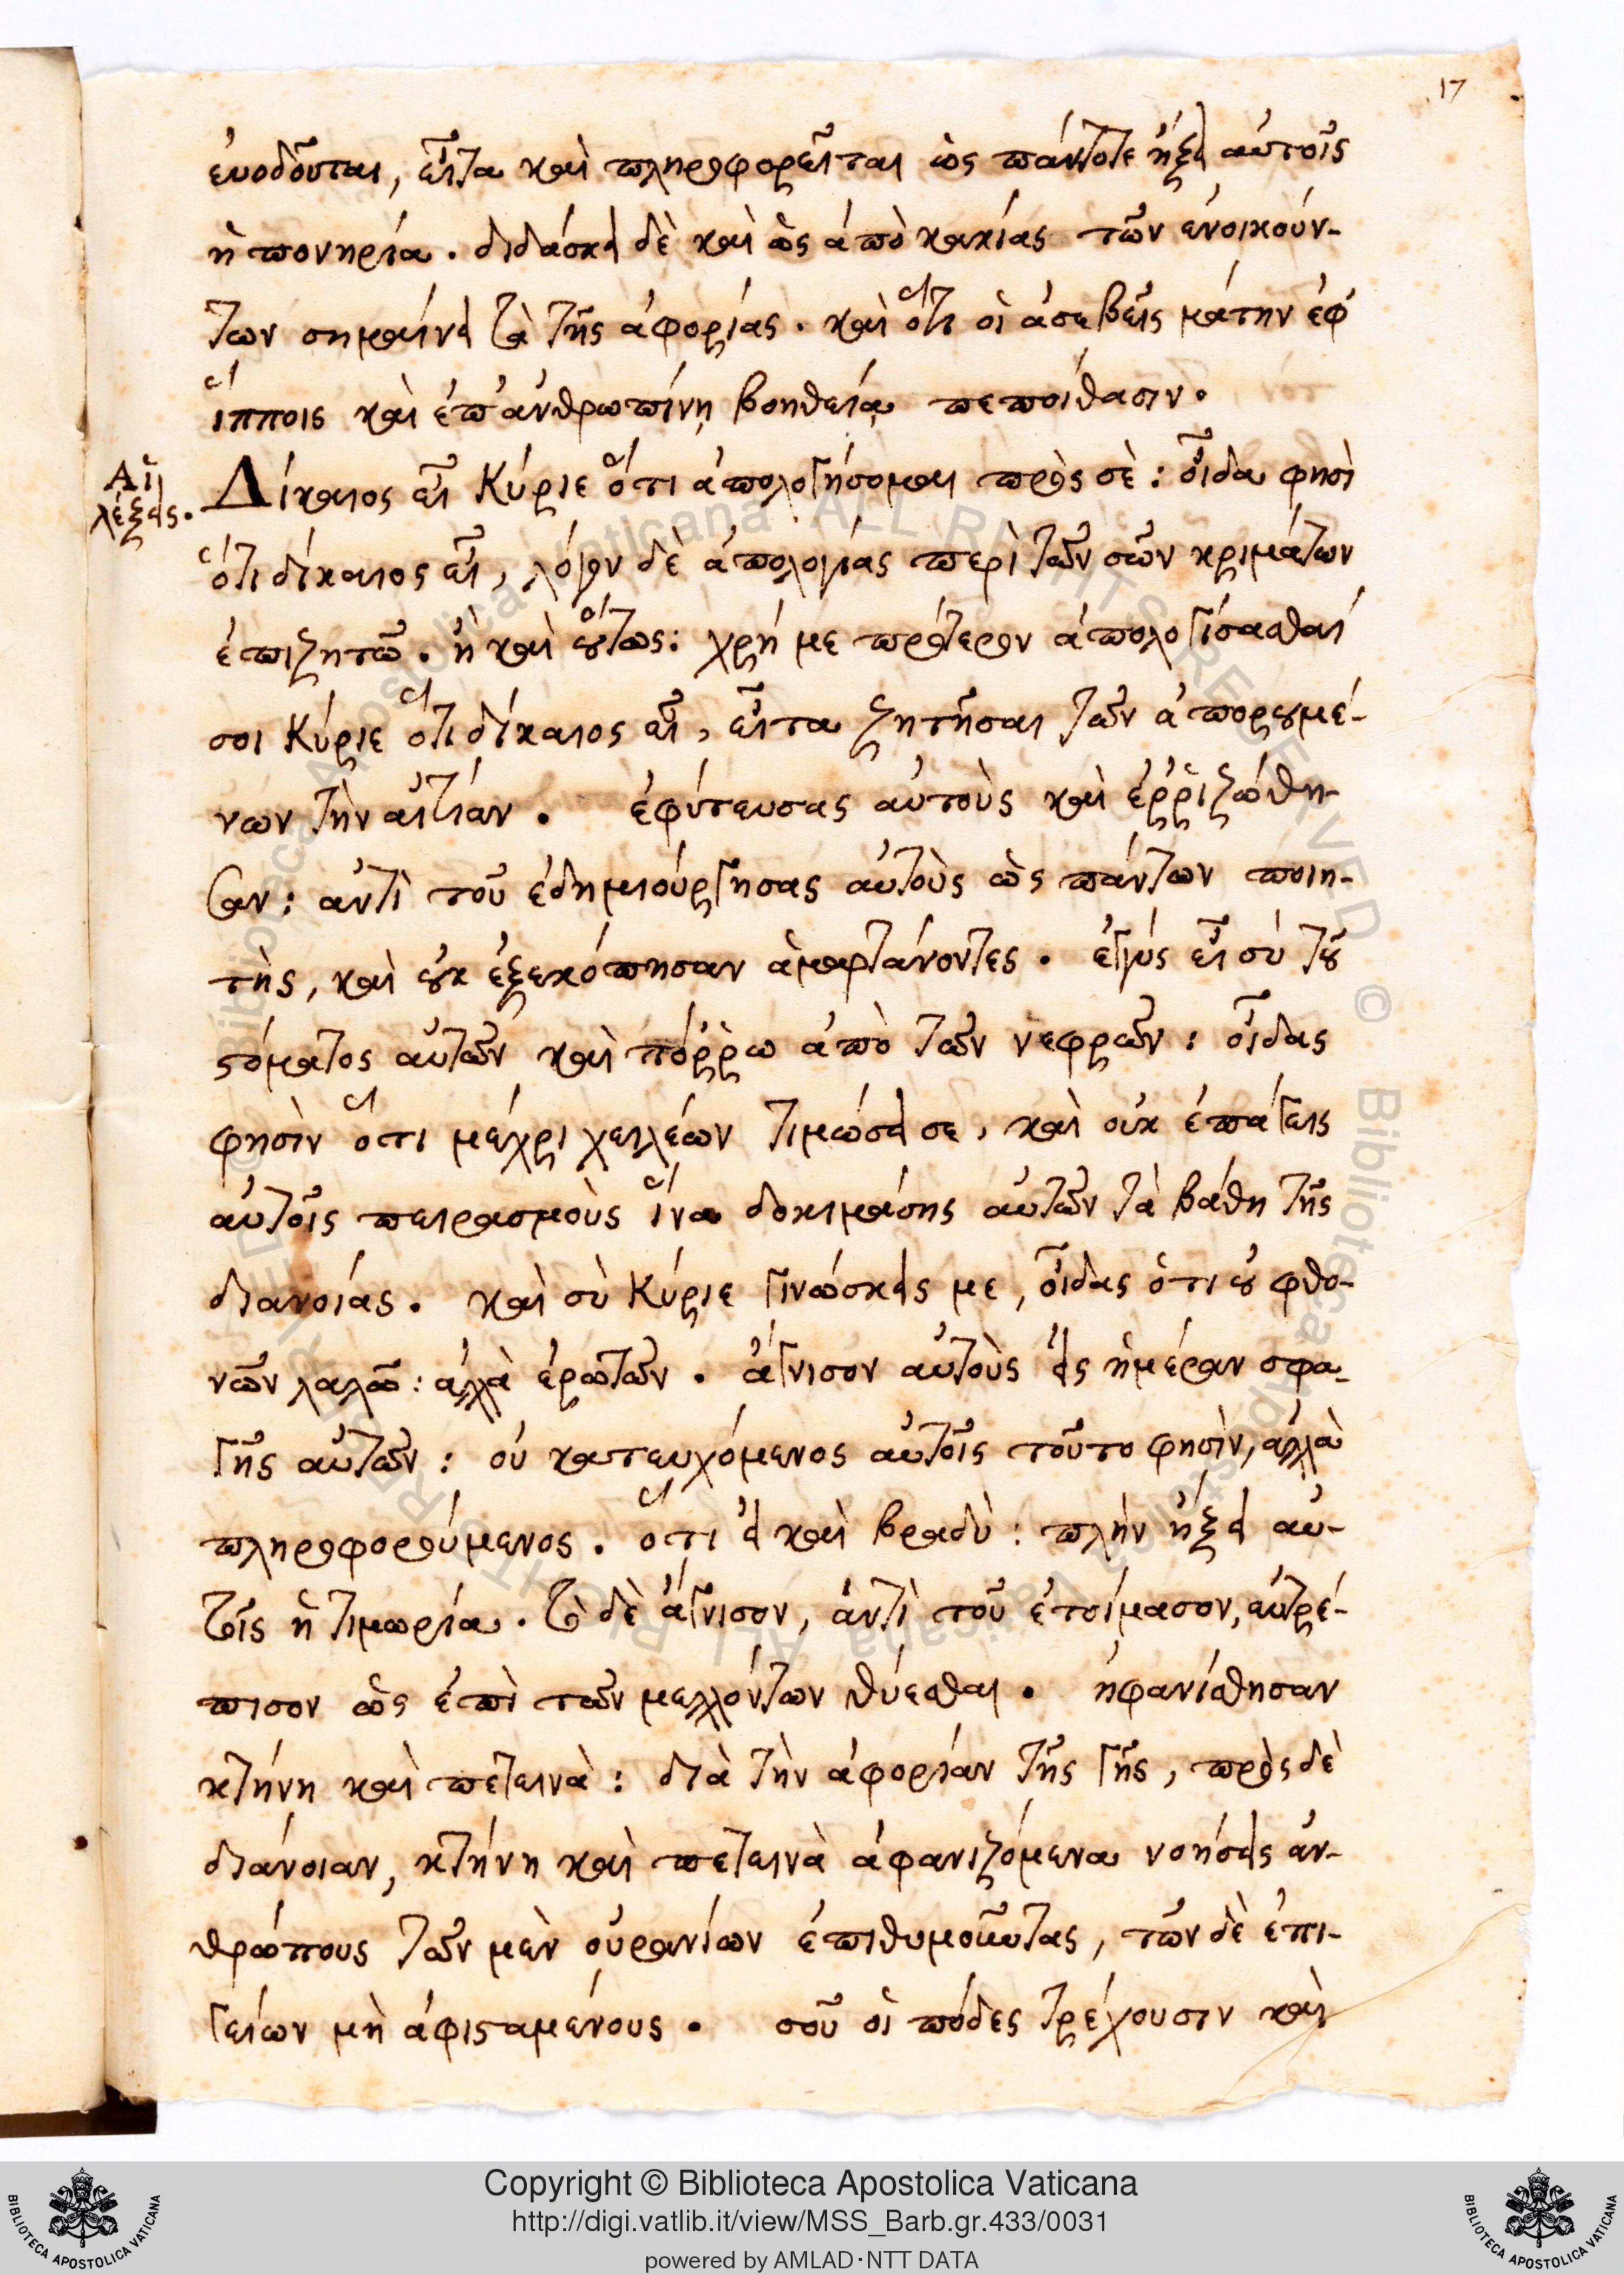 17
ἐυοδοῦται, εἶτα καὶ πληροφορεῖται ὡς πάντοτε ἥξει αὐτοῖς
ἡ πονηρία. διδάσκει δὲ καὶ ὡς ἀπὸ κακίας τῶν ἐνοικούν-
των σημαίνει τὰ τῆς ἀφορίας. καὶ ὅτι οἱ ἀσεβεῖς μάτην ἐφ'
ἵπποις καὶ ἐπ' ἀνθρωπίνῃ βοηθείᾳ πεποίθασιν.
Αἱ
λέξεις.
Δίκαιος εἶ Κύριε ὅτι ἀπολογήσομαι πρὸς σὲ: οἶδα φησὶ
ὅτι δίκαιος εἶ, λόγον δὲ ἀπολογίας περὶ τῶν σῶν κριμάτων
ἐπιζητῶ. ἢ καὶ οὕτως: χρή με πρότερον ἀπολογίσασθαί
σοι Κύριε ὅτι δίκαιος εἶ, εἶτα ζητῆσαι τῶν ἀπορουμέ-
νων τὴν αἰτίαν. ἐφύτευσας αὐτοὺς καὶ ἐῤῥιζώθη-
σαν: ἀντὶ τοῦ ἐδημιούργησας αὐτοὺς ὡς πάντων ποιη-
τὴς, καὶ οὐκ ἐξεκόπησαν ἁμαρτάνοντες. ἐγγύς εἶ σὺ τοῦ
στόματος αὐτῶν καὶ πόῤῥω ἀπὸ τῶν νεφρῶν: οἶδας
φησὶν ὅτι μέχρι χειλέων τιμῶσί σε, καὶ οὐκ ἐπάγεις
αὐτοῖς πειρασμοὺς ἵνα δοκιμάσῃς αὐτῶν τὰ βάθη τῆς
διανοίας. καὶ σὺ Κύριε γινώσκεις με, οἶδας ὅτι οὐ φθο-
νῶν λαλῶ: ἀλλὰ ἐρωτῶν. ἅγνισον αὐτοὺς εἰς ἡμέραν σφα-
γῆς αὐτῶν: οὐ κατευχόμενος αὐτοῖς τοῦτο φησὶν, ἀλλὰ
πληροφορούμενος. ὅτι εἰ καὶ βραδὺ: πλὴν ἥξει αὐ-
τοῖς ἡ τιμωρία. τὸ δὲ ἅγνισον, ἀντὶ τοῦ ἑτοίμασον, εὐτρέ-
πισον ὡς ἐπὶ τῶν μελλόντων θύεσθαι. ἠφανίσθησαν
κτήνη καὶ πετεινὰ: διὰ τὴν ἀφορίαν τῆς γῆς, πρὸς δὲ
διάνοιαν, κτήνη καὶ πετεινὰ ἀφανιζόμενα νοήσεις ἀν-
θρώπους τῶν μὲν οὐρανίων ἐπιθυμοῦντας, τῶν δὲ ἐπι-
γείων μὴ ἀφισταμένους. σοῦ οἱ πόδες τρέχουσιν καὶ
Copyright © Biblioteca Apostolica Vaticana
http://digi.vatlib.it/view/MSS_Barb.gr.433/0031
powered by AMLAD·NTT DATA
BIBLIOTECA APOSTOLICA VATICANA
BIBLIOTECA APOSTOLICA VATICANA
© Biblioteca Apostolica Vaticana ALL RIGHTS RESERVED
© Biblioteca Apostolica Vaticana ALL RIGHTS RESERVED